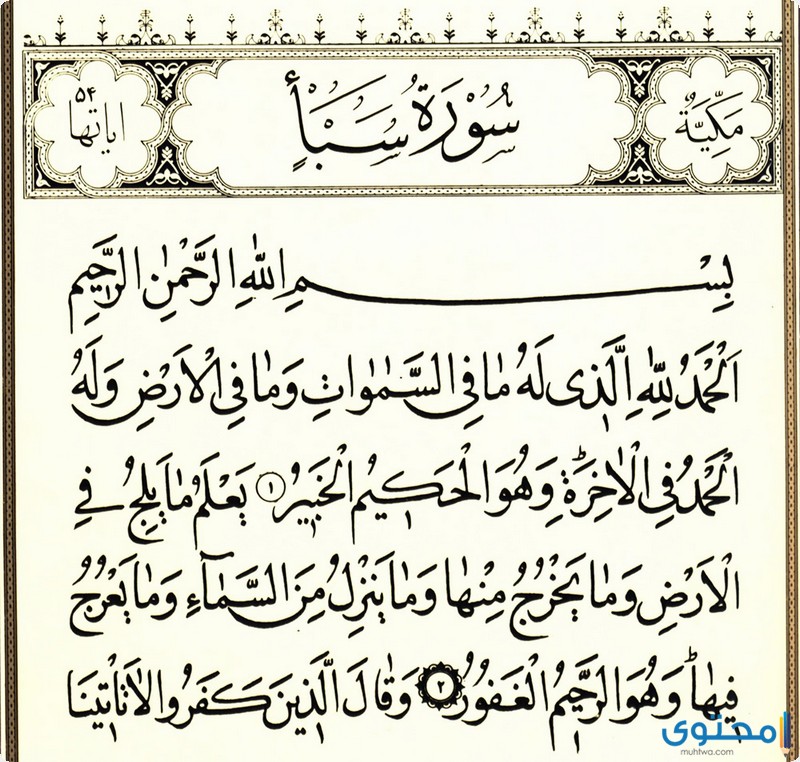 مَكِّيَّةٌ
سُورَةُ سَبَأٍ
اياتها ٥٤
بِسْمِ اللّٰهِ الرَّحْمٰنِ الرَّحٖيمِ
اَلْحَمْدُ لِلّٰهِ الَّذٖى لَهُ مَا فِى السَّمٰوَاتِ وَمَا فِى الْاَرْضِ وَلَهُ
الْحَمْدُ فِى الْاٰخِرَةِؕ وَهُوَ الْحَكٖيمُ الْخَبٖيرُ ١ يَعْلَمُ مَا يَلِجُ فِى
الْاَرْضِ وَمَا يَخْرُجُ مِنْهَا وَمَا يَنْزِلُ مِنَ السَّمَٓاءِ وَمَا يَعْرُجُ
فٖيهَاؕ وَهُوَ الرَّحٖيمُ الْغَفُورُ ٢ وَقَالَ الَّذٖينَ كَفَرُوا لَا تَاْتٖينَا
محتوى
muhtwa.com